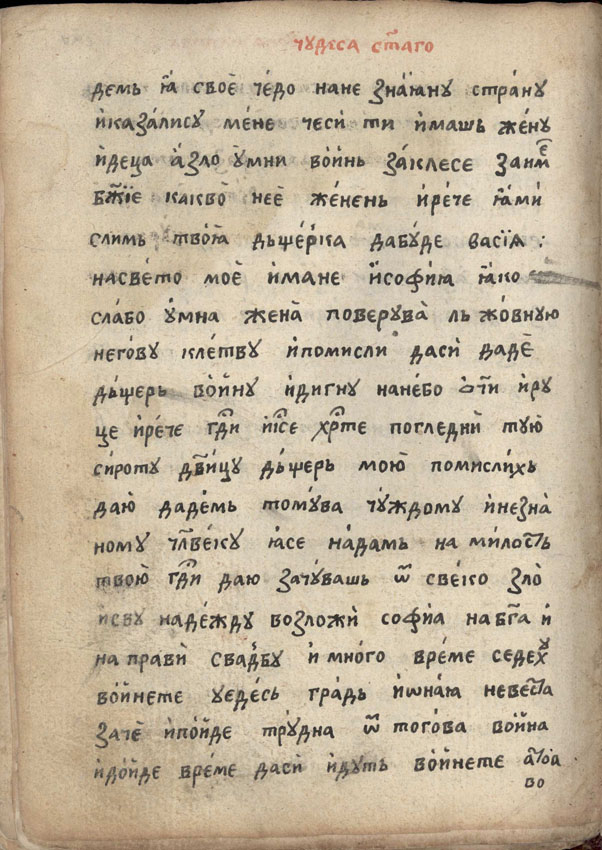 чꙋдеса ст҃аго
демь ꙗ҆ своѐ че́до нане зна́ꙗнꙋ стра́нꙋ
и҆каза́лисꙋ ме́не чеси̏ ти и҆машь же́нꙋ
и҆деца а҆зло ᲂу҆мни во́йнь за́клесе заимⷭ
бж҃їе какво̀ нее̏ же́нень и҆ре́че ꙗ҆ми
слимь тво́ꙗ дьще́рка дабꙋ́де васїѧ :
насве́то мое̏ и҆мане и҆софи́ꙗ ꙗ҆ко
сла́бо ᲂу҆мна жена̀ поверꙋва̀ ль жо́внꙋю
него́вꙋ кле́твꙋ и҆помисли даси̏ даде̏
дьщерь во́йнꙋ и҆дигнꙋ нане́бо ѻ҆чи и҆рꙋ
це и҆ре́че гд҃и і҆и҃се хрⷭ҇те погледни̏ тꙋю̏
си́ротꙋ дв҃и́цꙋ дьщерь мою̏ помисли́хь
даю̏ даде́мь томꙋ́ва чꙋ́ждомꙋ и҆незна̀
номꙋ чл҃ве́кꙋ ꙗ҆се на́дамь на ми́лость
твою̏ гд҃и даю̏ зачꙋ́вашь ѿ све́ко зло̀
и҆свꙋ наде́ждꙋ возложи̏ софи́а на бг҃а и҆
на прави̏ свадбꙋ и҆ мно́го вре́ме седехꙋ
во́йнете ᲂуедесь гра́дь и҆ѡна́ꙗ неве́ста
заче̏ и҆по́йде трꙋ́дна ѿ того́ва во́йна
и҆до́йде вре́ме даси̏ и҆дꙋть во́йнете
во